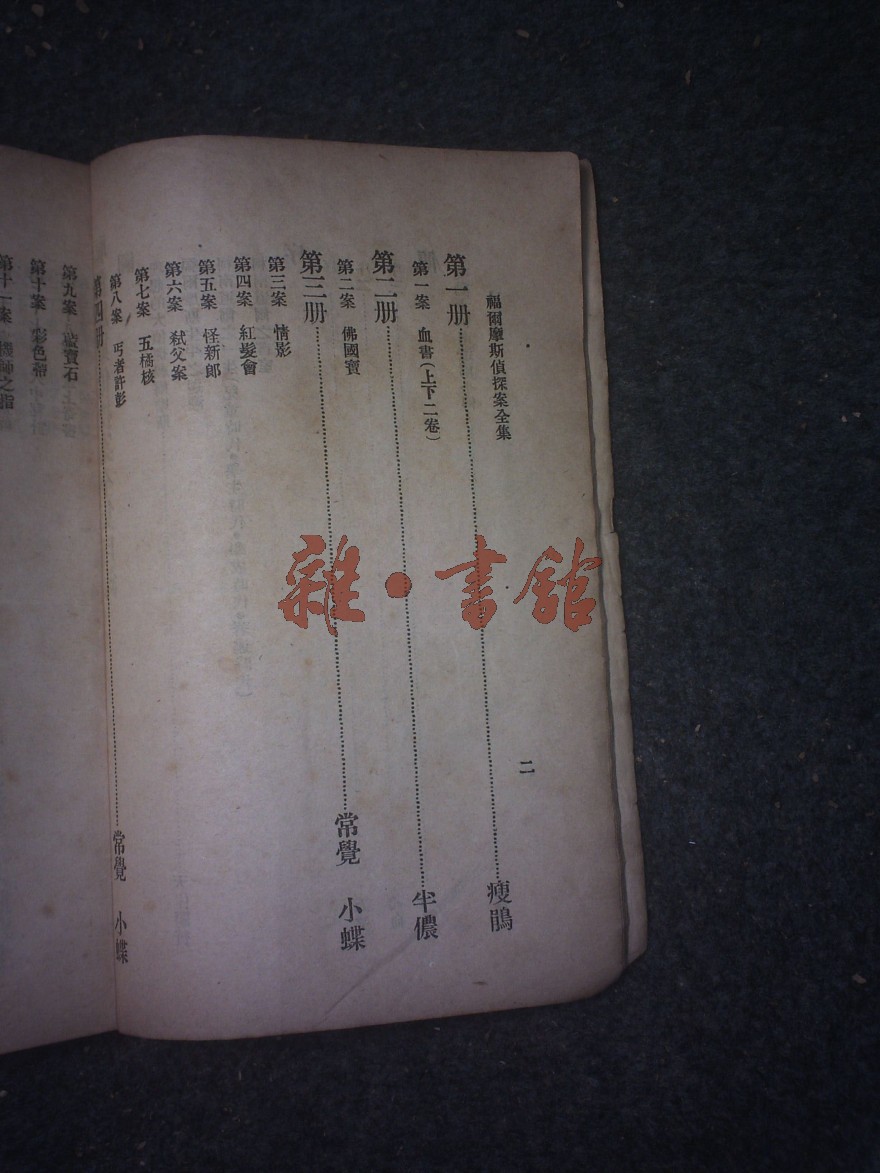 福爾摩斯偵探案全集
二
第一册……瘦鵑
第一案 血書(上下二卷)
第二册……半儂
第二案 佛國寶
第三册……常覺 小蝶
第三案 情影
第四案 紅髮會
第五案 怪新郎
第六案 弑父案
第七案 五橘核
第八案 丐者許彭
第四册……常覺 小蝶
第九案 藍寶石
第十案 彩色帶
第十一案 機師之指
雜·書館